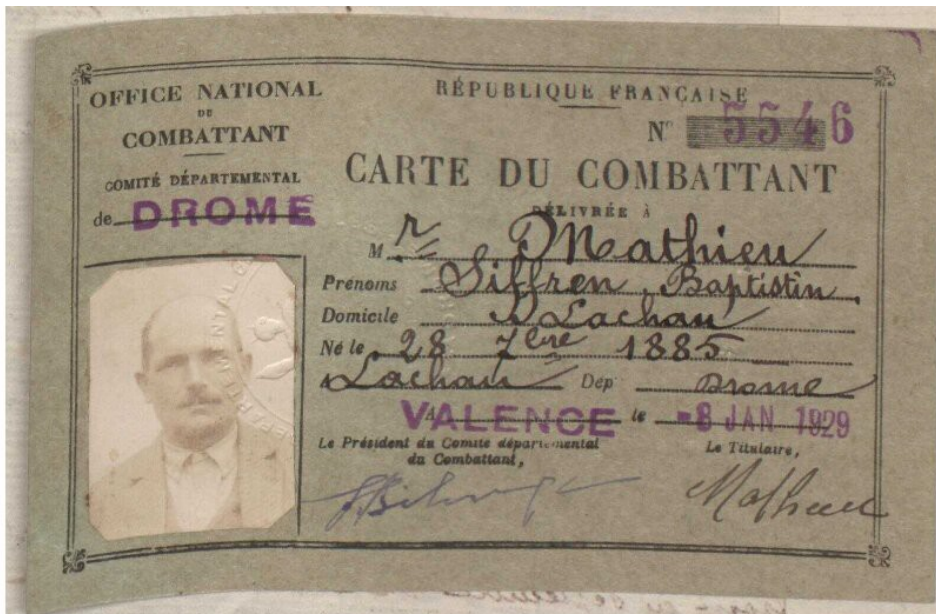 OFFICE NATIONAL
DU
COMBATTANT
COMITÉ DÉPARTEMENTAL
de DROME
RÉPUBLIQUE FRANÇAISE
N° 5546
CARTE DU COMBATTANT
DÉLIVRÉE À
M r Mathieu
Prénoms Siffren Baptistin
Domicile Lachau
Né le 28 7bre 1885
à Lachau Dép Drome
A VALENCE le -8 JAN 1929
Le Président du Comité départemental
du Combattant,
Le Titulaire,
Mathieu